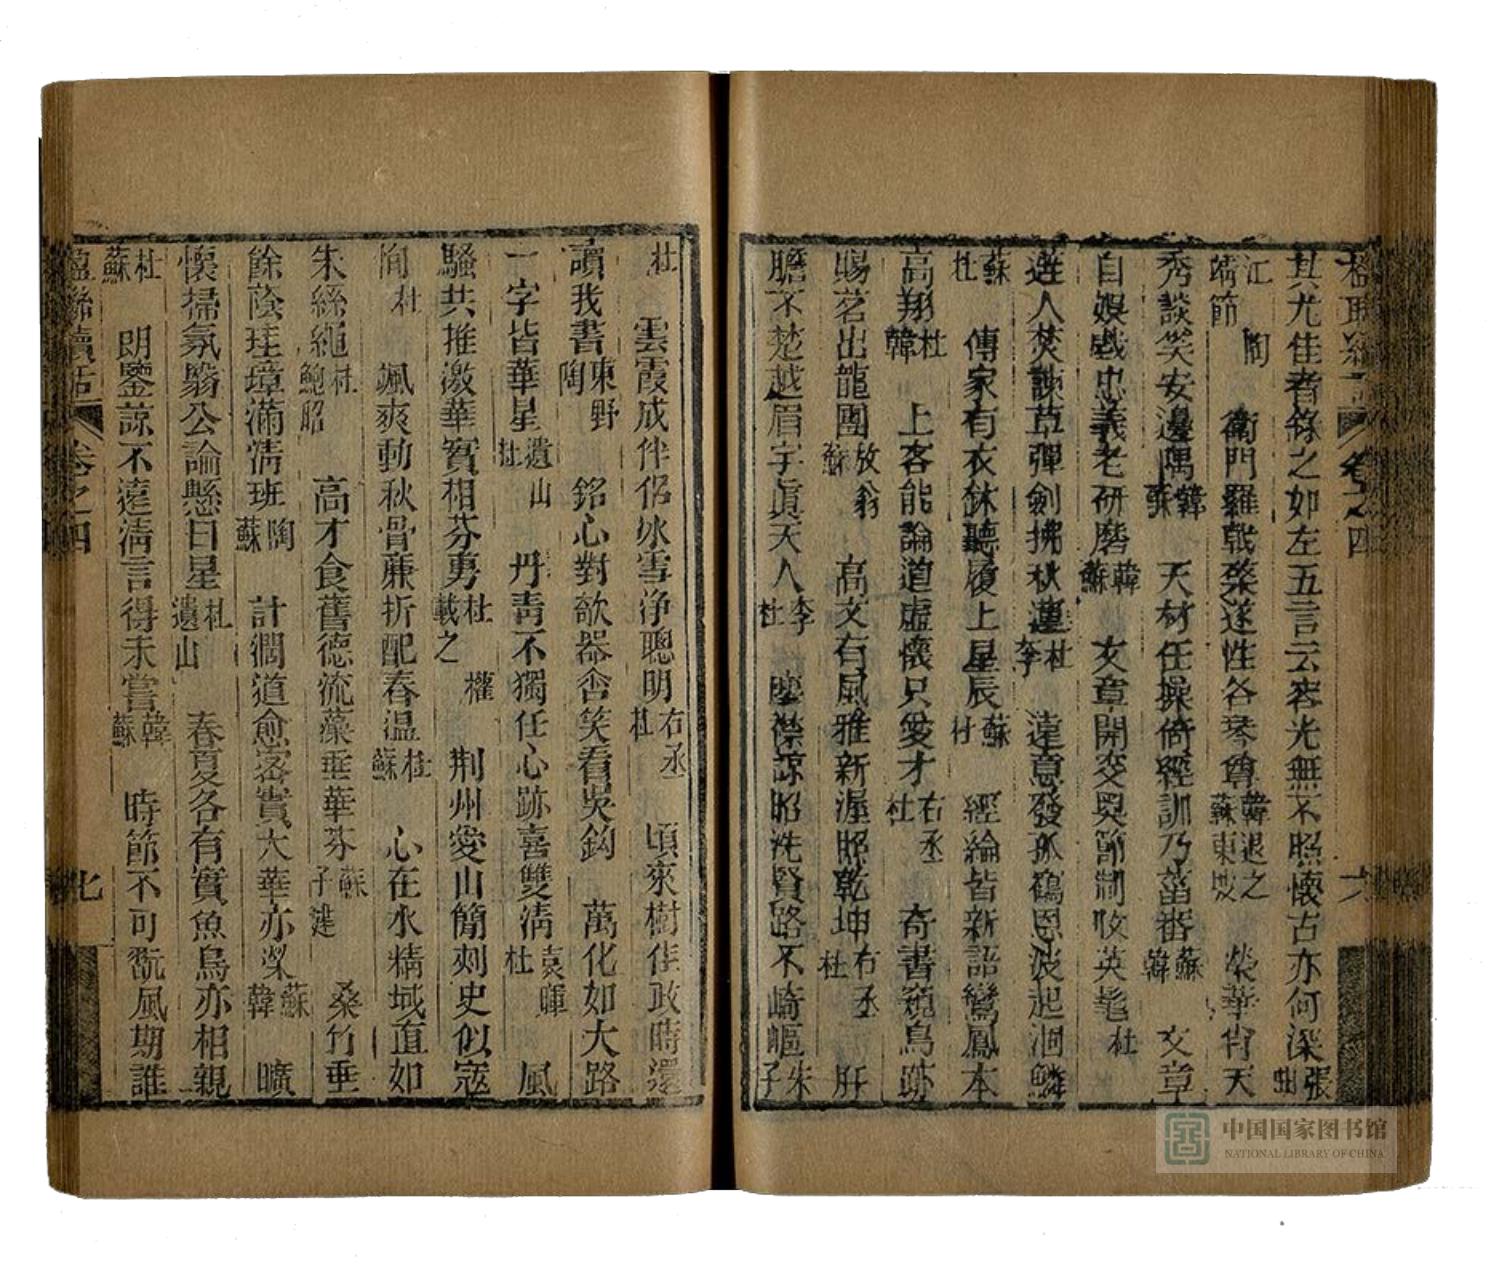 楹聯續話 卷之四 六
其尤佳者錄之如左五言云容光無不照懷古亦何深張曲
江 陶靖節 衡門羅戟槊遂性各琴尊韓退之 蘇東坡 榮華肖天
秀談笑安邊隅韓蘇 天材任操倚經訓乃菑畬蘇韓 文章
自娛戲忠義老研磨韓蘇 文章開突奧節制收英髦杜
逆人焚諫草彈劍拂秋蓮杜李 遠意發孤鶴恩波起涸鱗
蘇杜 傳家有衣缽聽履上星辰蘇杜 經綸皆新語鸞鳳本
高翔杜韓 上客能論道虛懷只愛才右丞 杜 奇書窺鳥跡
賜茗出龍團放翁 蘇 高文有風雅新渥照乾坤右丞 杜 肝
膽不楚越眉宇真天人李杜 塵襟諒昭洗賢路不崎嶇朱子
杜 雲霞成伴侶冰雪淨聰明右丞 杜 頃來樹佳政時還
讀我書東野 陶 銘心對欹器含笑看吳鉤 萬化如大路
一字皆華星遺山 杜 丹青不獨任心跡喜雙清袁暉 杜 風
騷共推激華實相芬敷杜 載之 權 荆州愛山簡刺史似寇
恂杜 颯爽動秋骨蔗折配春温杜蘇 心在水精域直如
朱絲繩杜 鮑昭 高才食舊德流藻垂華芬蘇 子建 桑竹垂
餘蔭珪璋滿清班陶蘇 計澗道愈密實大華亦榮蘇韓 曠
懷掃氛翳公論懸日星杜 遺山 春夏各有實魚鳥亦相親
杜蘇 朗鑒諒不遠清言得未嘗韓蘇 時節不可翫風期誰
楹聯續話 卷之四 七
中国国家图书馆
NATIONAL LIBRARY OF CHINA